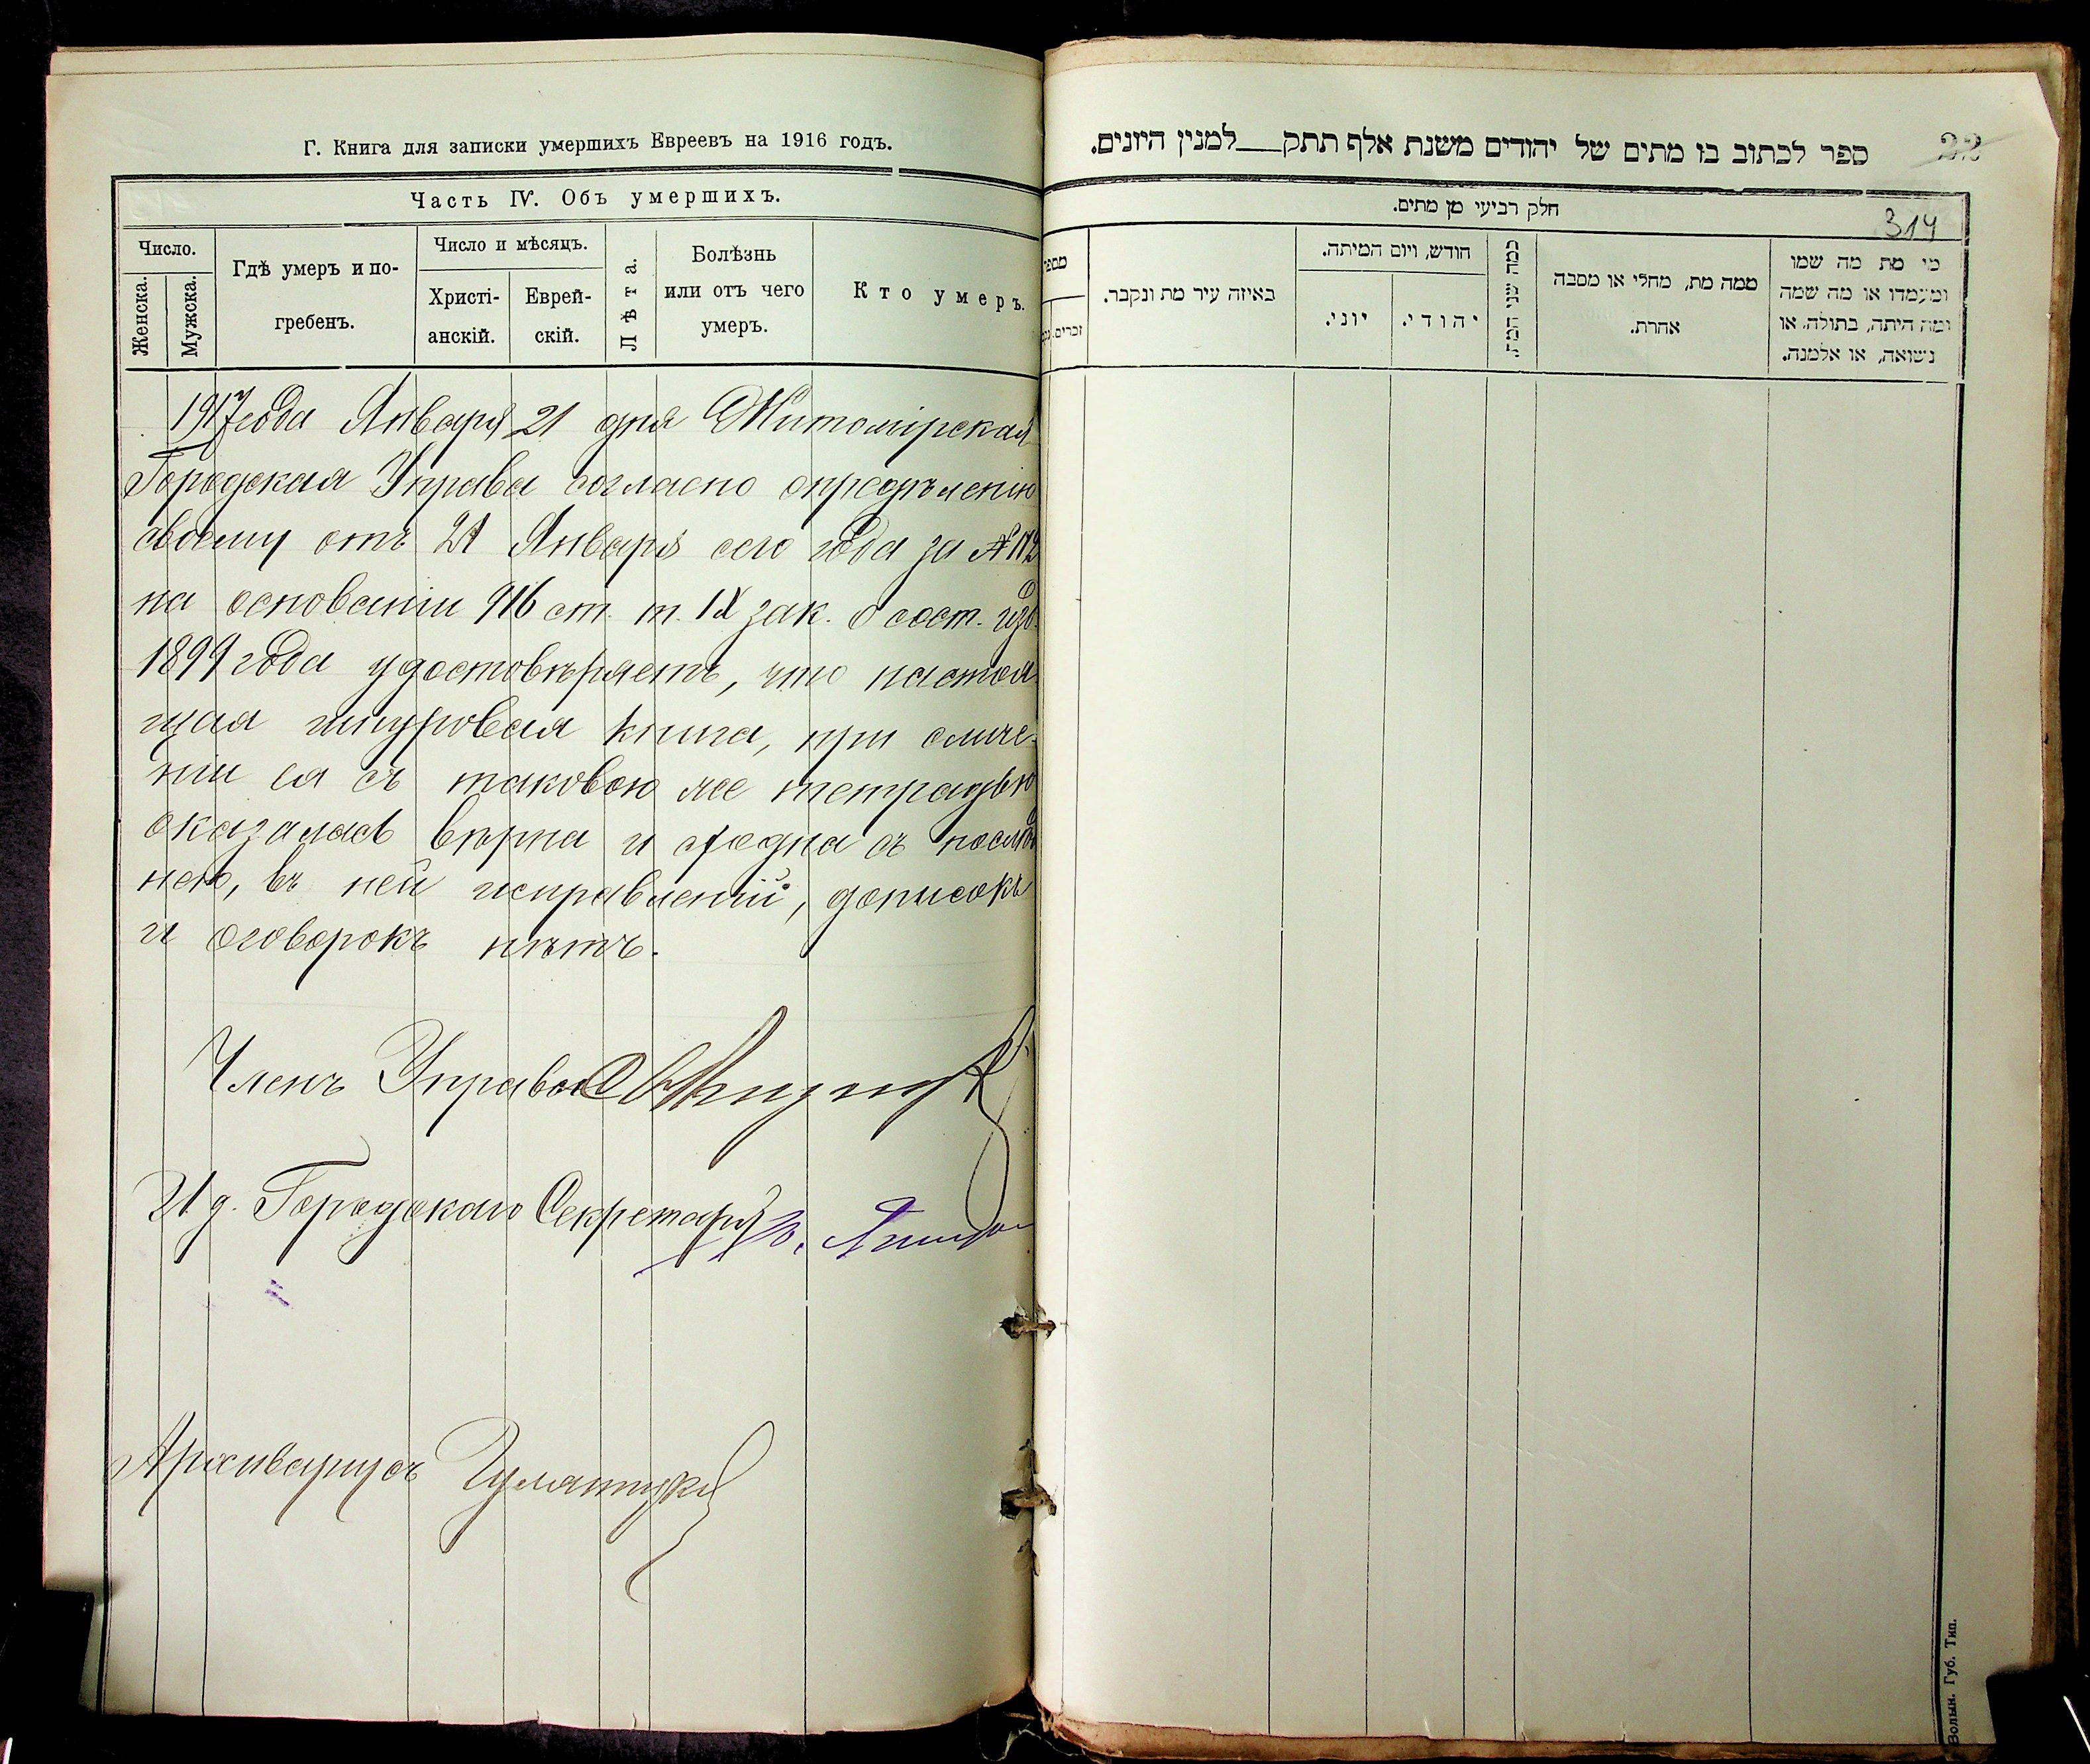 Г. Книга для записки умершихъ Евреевъ на 1916 годъ.
Часть IV. Объ умершихъ.
Число.
Женска.
Мужска.
Гдѣ умеръ и по-
гребенъ.
Число и мѣсяцъ.
Христі-
анскій.
Еврей-
скій.
Лѣта.
Болѣзнь
или отъ чего
умеръ.
Кто умеръ.
1917 года Января 21 дня Житомірская
Городская Управа согласно опредѣленію
своему отъ 21 Января сего года за №
на основаніи 916 ст. т. IX зак. о сост. изд.
1899 года удостовѣряетъ, что настоя-
щая шнуровая книга, при сличе-
ніи ея съ таковою же тетрадью
оказалась вѣрна и сходна съ послѣд
нею, въ ней исправленій, дописокъ
и оговорокъ нѣтъ.
Членъ Управы
И. д. Городского Секретаря
Архиваріусъ
ספר לכתוב בו מתים של יהודים משנת אלף תתק למנין היונים.
22
חלק רביעי מן מתים.
314
מספר
זכרים.
באיזה עיר מת ונקבר.
חודש, ויום המיתה.
יוני.
יהודי.
כמה שני המת.
ממה מת, מחלי או מסבה
אחרת.
מי מת מה שמו
ומעמדו או מה שמה
ומה היתה, בתולה, או
נשואה, או אלמנה.
Волын. Губ. Тип.